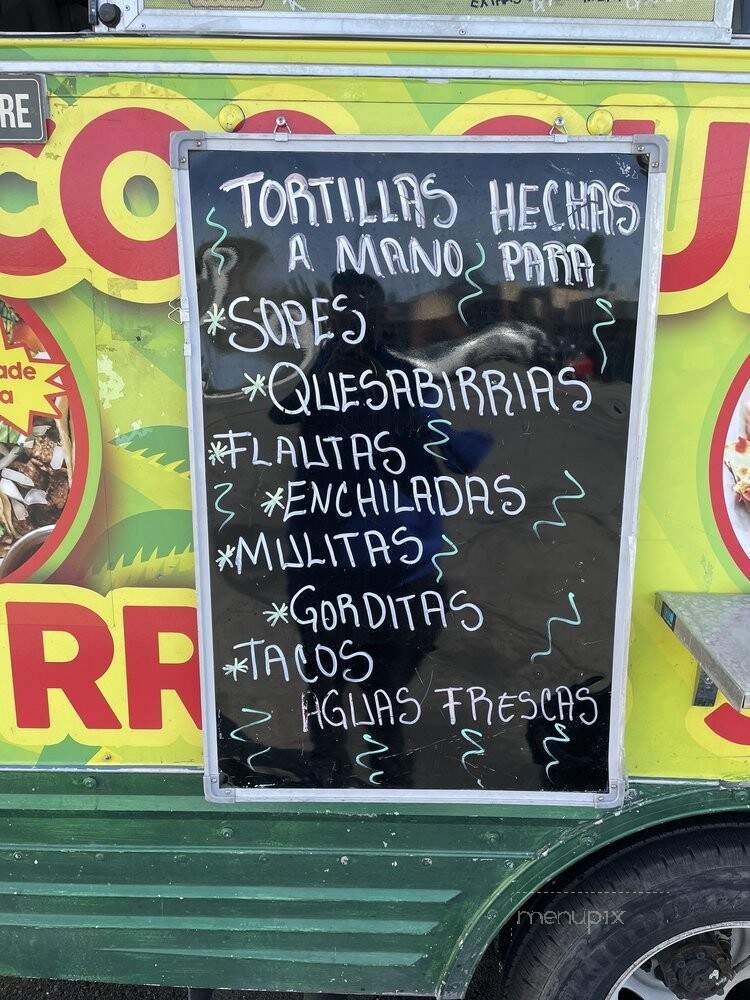 RE
CO
TORTILLAS HECHAS
A MANO PARA
*SOPES
*QUESABIRRIAS
*FLAUTAS
*ENCHILADAS
*MULITAS
*GORDITAS
*TACOS
AGUAS FRESCAS
ade
a
RR
menupix